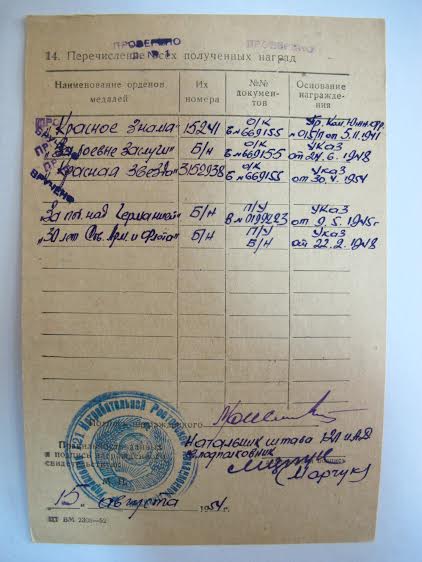 ПРОВЕРЕНО
ПРОВЕРЕНО
14. Перечисление всех полученных наград
Наименование орденов медалей
Их номера
№№ документов
Основание награждения
"Красное Знамя" 15241 О/К Б № 669155 Пр. Ком. Южн. фр. от 5.11.1941
"За боевые Заслуги" Б/н О/К Б № 669155 Указ от 24.6.1948
"Красная Звезда" 3152938 О/К Б № 669155 Указ от 30.4.1954
ВРУЧЕНО
"За поб. над Германией" Б/н П/У В № 0199423 Указ от 9.5.1945г
"30 лет Сов. Арм. и Флота" Б/н П/У Б/н Указ от 22.2.1948
Подпись награжденного
Правильность данных и подпись награжденного свидетельствую:
Начальник штаба
подпись
(Марчук)
М. П.
"15" августа 1954 г.